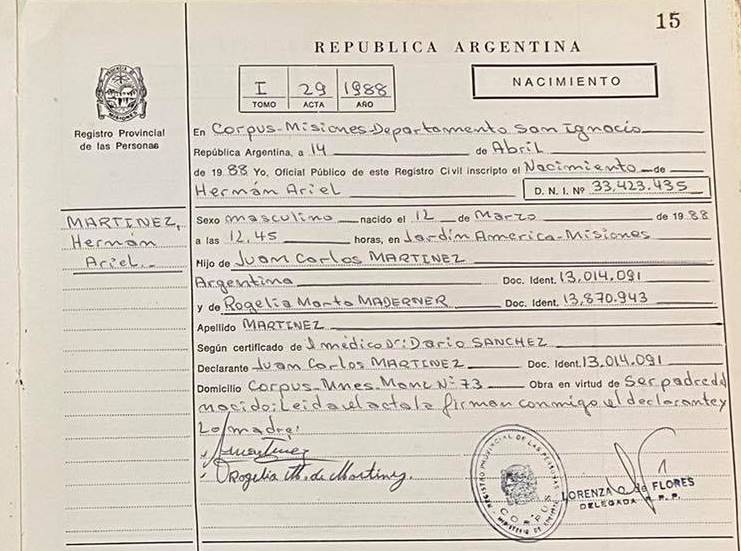 15
REPUBLICA ARGENTINA
I 29 1988
TOMO ACTA AÑO
NACIMIENTO
Registro Provincial
de las Personas
En Corpus-Misiones-Departamento San Ignacio
República Argentina, a 14 de Abril
de 1988 Yo, Oficial Público de este Registro Civil inscripto el Nacimiento de
Hernán Ariel D. N. I. Nº 33,423.435
MARTINEZ,
Hernán
Ariel.
Sexo masculino nacido el 12 de Marzo de 1988
a las 12,45 horas, en Jardín América-Misiones
Hijo de Juan Carlos MARTINEZ
Argentina Doc. Ident. 13,014,091
y de Rogelia Marta MADERNER Doc. Ident. 13,870,943
Apellido MARTINEZ
Según certificado de el médico Dr: Dario SANCHEZ
Declarante Juan Carlos MARTINEZ Doc. Ident. 13,014,091
Domicilio Corpus-Mnes-Manz Nº 73 Obra en virtud de Ser padre del
nacido: Leida el acta la firman conmigo el declarante y
La madre:
Rogelia M. de Martinez.
REGISTRO PROVINCIAL DE LAS PERSONAS
CORPUS
LORENZA de FLORES
DELEGADA R. P. P.